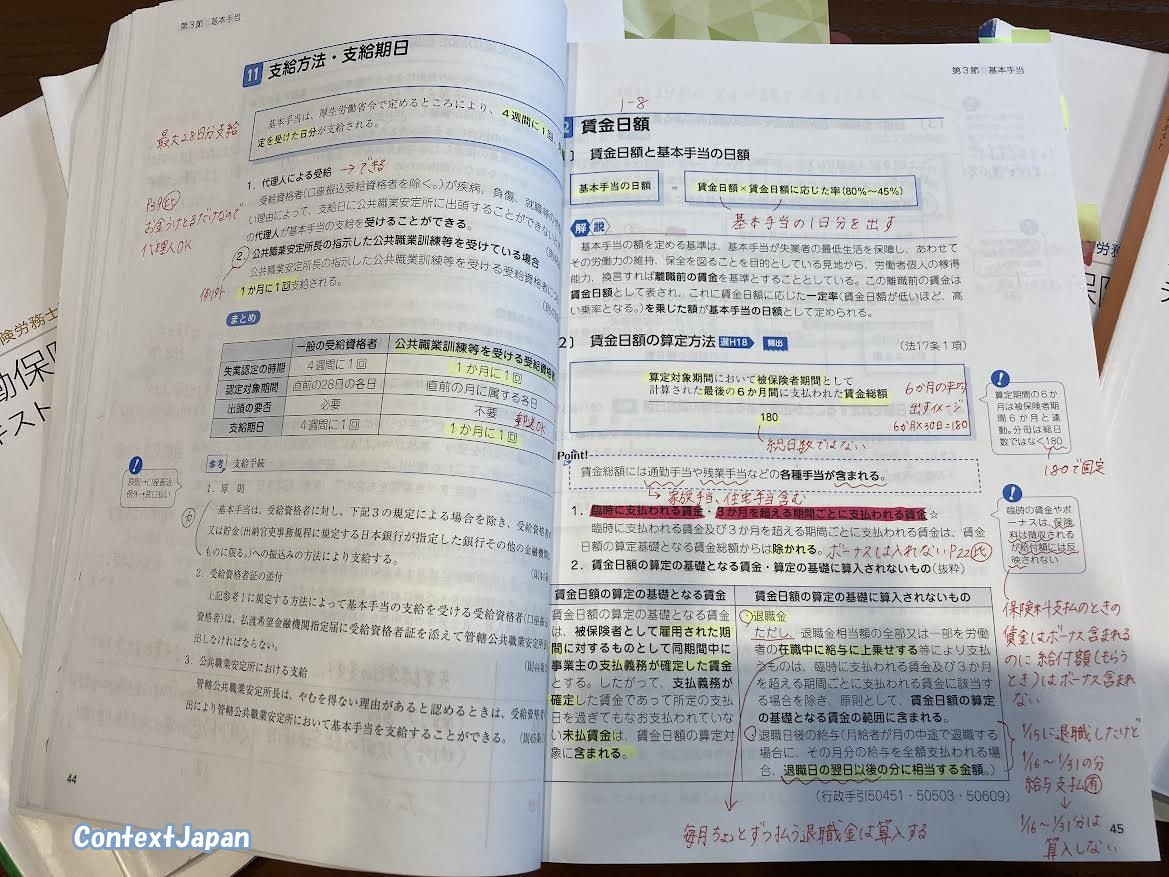 第3節 基本手当
11 支給方法・支給期日
基本手当は、厚生労働省令で定めるところにより、4週間に1回、
定を受けた日分が支給される。
最大28日分支給
1. 代理人による受給 →できる
受給資格者(口座振込受給資格者を除く。)が疾病、負傷、就職等の
い理由によって、支給日に公共職業安定所に出頭することができない
の代理人が基本手当の支給を受けることができる。
お金うけとるだけなので
代理人OK
2. 公共職業安定所長の指示した公共職業訓練等を受けている場合
公共職業安定所長の指示した公共職業訓練等を受ける受給資格者に
例外
1か月に1回支給される。
まとめ
一般の受給資格者 公共職業訓練等を受ける受給資格者
失業認定の時期 4週間に1回 1か月に1回
認定対象期間 直前の28日の各日 直前の月に属する各日
出頭の要否 必要 不要
支給期日 4週間に1回 1か月に1回
!
原則→口座振込
例外→窓口払い
参考 支給手続
1. 原則
基本手当は、受給資格者に対し、下記3の規定による場合を除き、受給資格者
又は貯金(出納官吏事務規程に規定する日本銀行が指定した銀行その他の金融機関
ものに限る。)への振込みの方法により支給する。
2. 受給資格者証の添付
上記参考1に規定する方法によって基本手当の支給を受ける受給資格者(口座振
資格者)は、払渡希望金融機関指定届に受給資格者証を添えて管轄公共職業安定所
出しなければならない。
3. 公共職業安定所における支給
管轄公共職業安定所長は、やむを得ない理由があると認めるときは、受給資格者
出により管轄公共職業安定所において基本手当を支給することができる。
44
ContextJapan
第3節 基本手当
1-8
2 賃金日額
1〕 賃金日額と基本手当の日額
基本手当の日額 = 賃金日額×賃金日額に応じた率(80%~45%)
基本手当の1日分を出す
解説
基本手当の額を定める基準は、基本手当が失業者の最低生活を保障し、あわせて
その労働力の維持、保全を図ることを目的としている見地から、労働者個人の稼得
能力、換言すれば離職前の賃金を基準とすることとしている。この離職前の賃金は
賃金日額として表され、これに賃金日額に応じた一定率(賃金日額が低いほど、高
い乗率となる。)を乗じた額が基本手当の日額として定められる。
2〕 賃金日額の算定方法 選H18 頻出 (法17条1項)
算定対象期間において被保険者期間として
計算された最後の6か月間に支払われた賃金総額
180
6か月の平均
出すイメージ
6か月×30日=180
総日数ではない
!
算定期間の6か
月は被保険者期
間6か月と連
動。分母は総日
数ではなく180
180で固定
Point!
賃金総額には通勤手当や残業手当などの各種手当が含まれる。
家族手当、住宅手当含む
1. 臨時に支払われる賃金・3か月を超える期間ごとに支払われる賃金☆
臨時に支払われる賃金及び3か月を超える期間ごとに支払われる賃金は、賃金
日額の算定基礎となる賃金総額からは除かれる。ボーナスは入れない P22
2. 賃金日額の算定の基礎となる賃金・算定の基礎に算入されないもの(抜粋)
!
臨時の賃金やボ
ーナスは、保険
料は徴収される
が給付額には反
映されない
賃金日額の算定の基礎となる賃金
賃金日額の算定の基礎となる賃金
は、被保険者として雇用された期
間に対するものとして同期間中に
事業主の支払義務が確定した賃金
とする。したがって、支払義務が
確定した賃金であって所定の支払
日を過ぎてもなお支払われていな
い未払賃金は、賃金日額の算定対
象に含まれる。
賃金日額の算定の基礎に算入されないもの
退職金
ただし、退職金相当額の全部又は一部を労働
者の在職中に給与に上乗せする等により支払
うものは、臨時に支払われる賃金及び3か月
を超える期間ごとに支払われる賃金に該当す
る場合を除き、原則として、賃金日額の算定
の基礎となる賃金の範囲に含まれる。
退職日後の給与(月給者が月の中途で退職する
場合に、その月分の給与を全額支払われる場
合、退職日の翌日以後の分に相当する金額。)
(行政手引50451・50503・50609)
保険料支払のときの
賃金はボーナス含まれる
のに給付額(もらう
とき)はボーナス含まれ
ない
1/15に退職したけど
1/16~1/31の分
給与支払有
↓
1/16~1/31分は
算入しない
毎月ちょっとずつ払う退職金は算入する
45